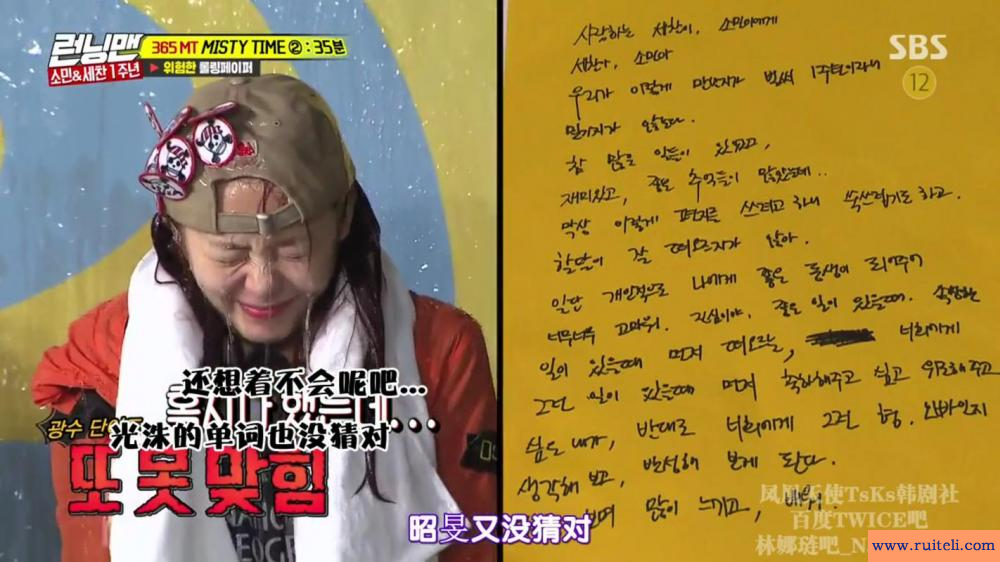 런닝맨
소민&세찬 1주년
365 MT MISTY TIME ② : 35분
▶ 위험한 롤링페이퍼
还想着不会呢吧...
혹시나 했는데...
광수 단
光洙的单词也没猜对
또 못 맞힘
昭旻又没猜对
SBS
12
사랑하는 세찬이, 소민이에게
세찬아, 소민아
우리가 이렇게 만난지가 벌써 1주년이라니
믿기지가 않는다.
참 많은 일들이 있었고,
재미있고, 좋은 추억들이 많았는데..
막상 이렇게 편지를 쓰려고 하니 쑥쓰럽기도 하고.
할말이 잘 떠오르지가 않아.
일단 개인적으로 나에게 좋은 동생이 되어주어
너무너무 고마워. 진심이야. 좋은 일이 있을때. 속상한
일이 있을때 먼저 떠오르는, 너희에게
그런 일이 있을때 먼저 축하해주고 싶고 위로해주고
싶은 내가, 반대로 너희에게 그런 형, 오빠인지
생각해 보고, 반성해 보게 된다.
많이 느끼고, 배워
凤凰天使TsKs韩剧社
百度TWICE吧
林娜琏吧_N
www.ruiteli.com